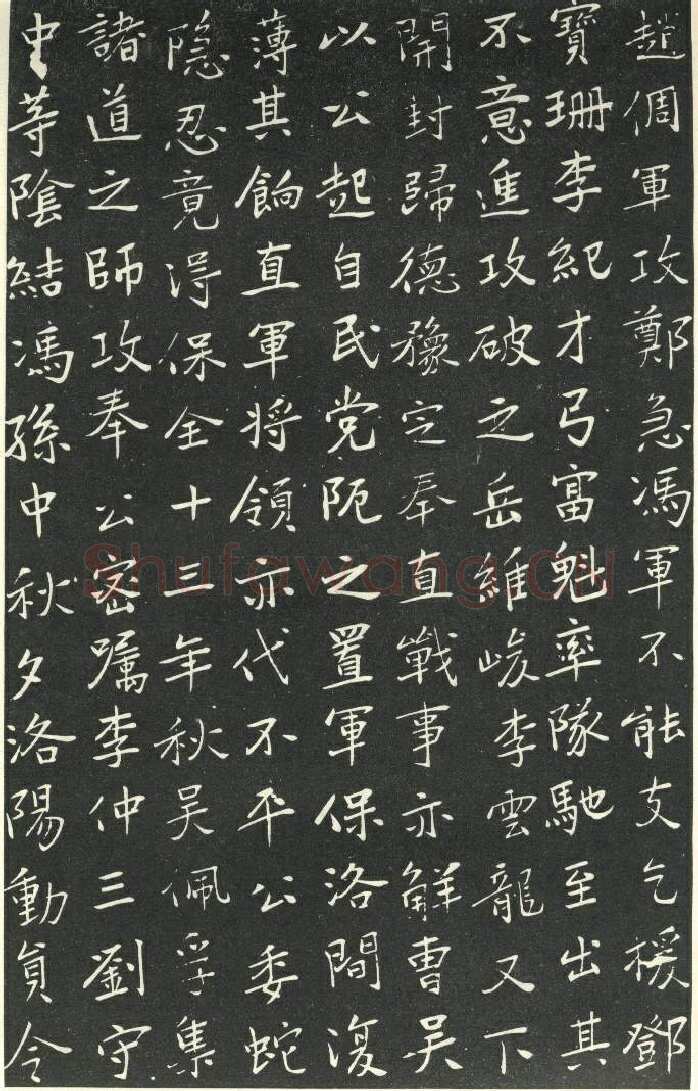 趙倜軍攻鄭急馮軍不能支乞援鄧
寶珊李紀才弓富魁率隊馳至出其
不意進攻破之岳維峻李雲龍又下
開封歸德豫定奉直戰事亦解曹吳
以公起自民党阨之置軍保洛間復
薄其餉直軍将領亦代不平公委蛇
隐忍竟得保全十三年秋吴佩孚集
諸道之師攻奉公密嘱李仲三劉守
中等陰結馮孫中秋夕洛陽動員令
Shufawang.CN